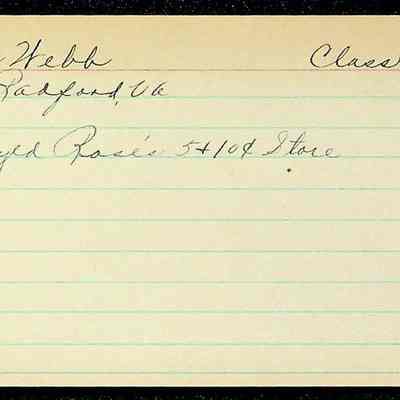 Webb Class
Radford, Va
Rose's 5+10¢ Store